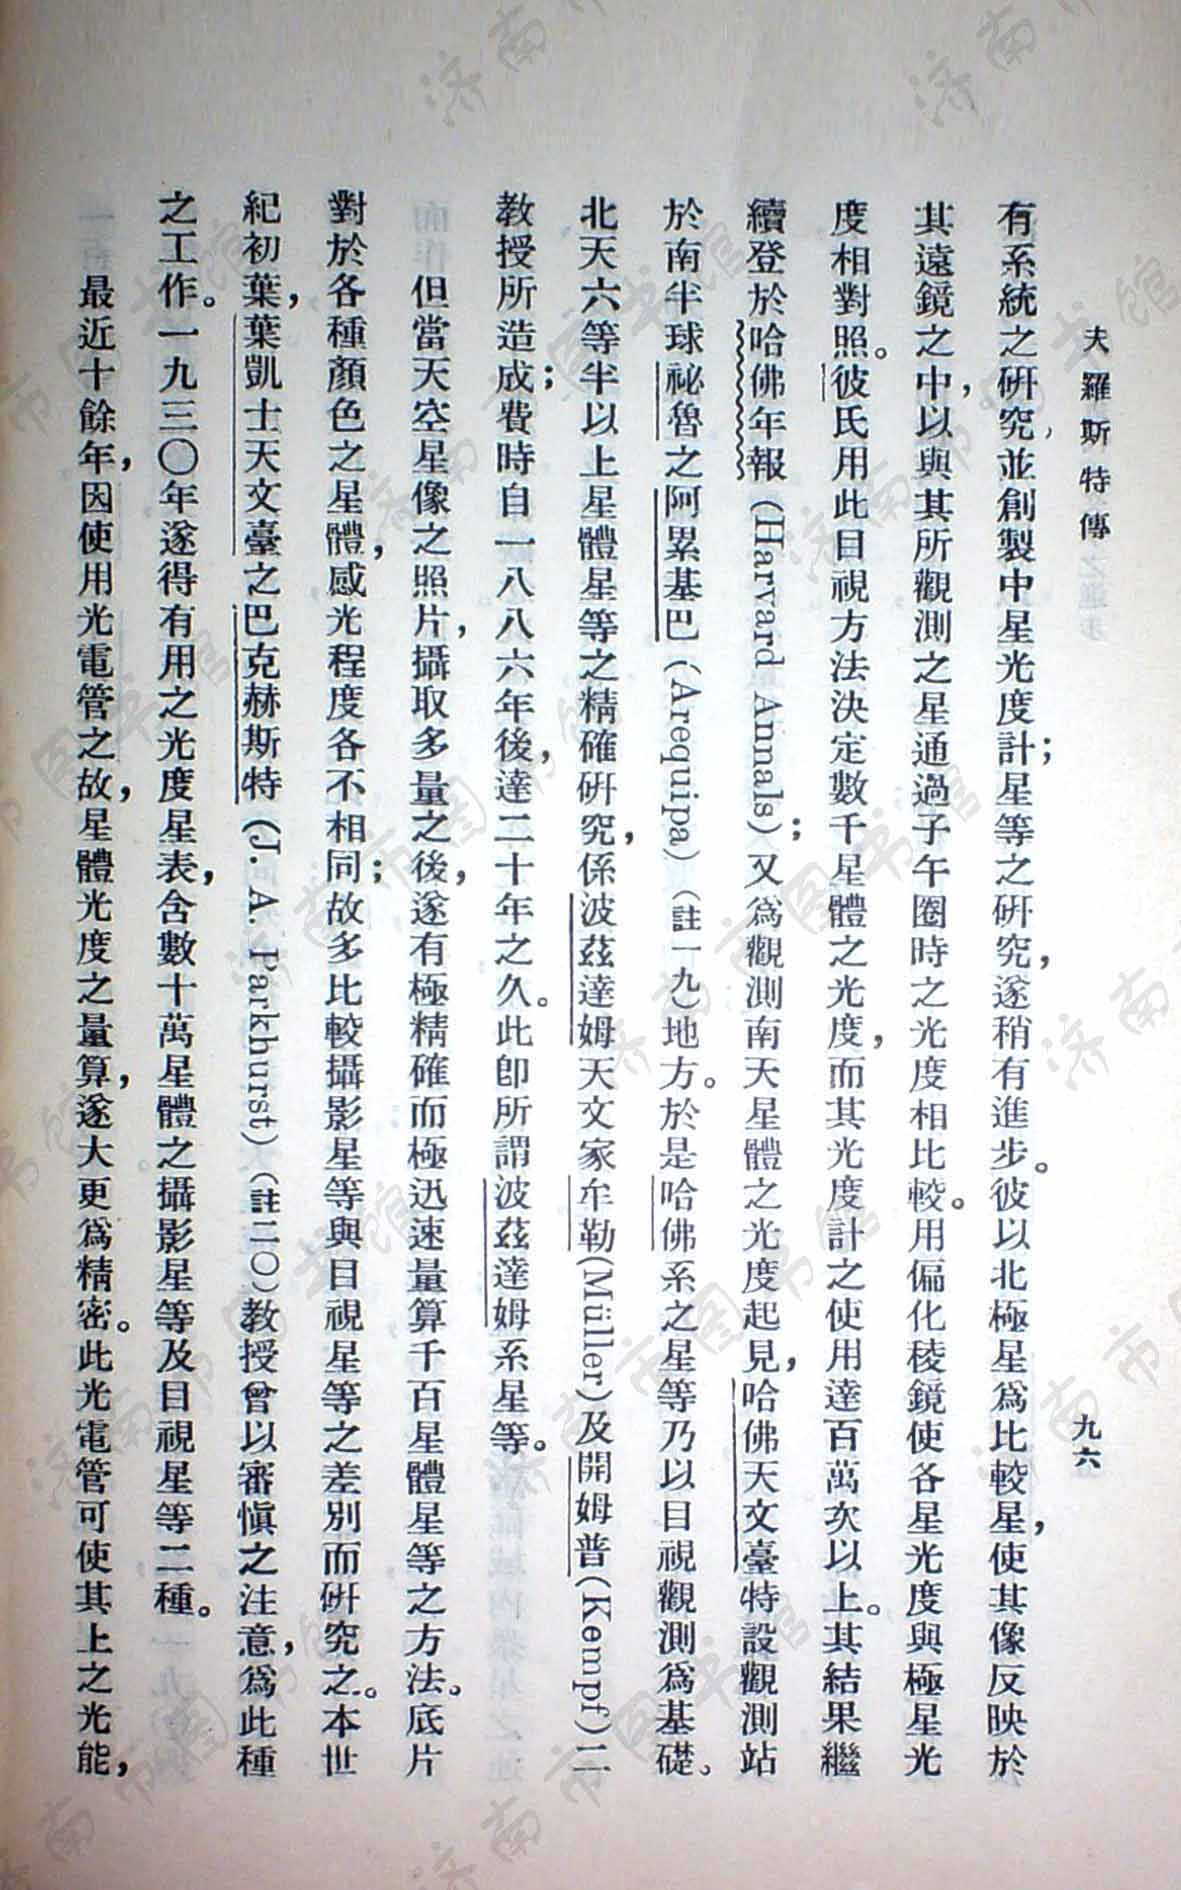 夫羅斯特傳
九六
有系統之研究，並創製中星光度計；星等之研究，遂稍有進步。彼以北極星爲比較星，使其像反映於
其遠鏡之中，以與其所觀測之星通過子午圈時之光度相比較。用偏化稜鏡使各星光度與極星光
度相對照。彼氏用此目視方法決定數千星體之光度，而其光度計之使用達百萬次以上。其結果繼
續登於哈佛年報(Harvard Annals)；又爲觀測南天星體之光度起見，哈佛天文臺特設觀測站
於南半球祕魯之阿累基巴(Arequipa)(註一九)地方。於是哈佛系之星等乃以目視觀測爲基礎。
北天六等半以上星體星等之精確研究，係波茲達姆天文家牟勒(Müller)及開姆普(Kempf)二
教授所造成；費時自一八八六年後，達二十年之久。此卽所謂波茲達姆系星等。
但當天空星像之照片，攝取多量之後，遂有極精確而極迅速量算千百星體星等之方法。底片
對於各種顏色之星體，感光程度各不相同；故多比較攝影星等與目視星等之差別而研究之。本世
紀初葉，葉凱士天文臺之巴克赫斯特(J. A. Parkhurst)(註二〇)教授曾以審愼之注意，爲此種
之工作。一九三〇年遂得有用之光度星表，含數十萬星體之攝影星等及目視星等二種。
最近十餘年，因使用光電管之故，星體光度之量算，遂大更爲精密。此光電管可使其上之光能，
济南市图书馆